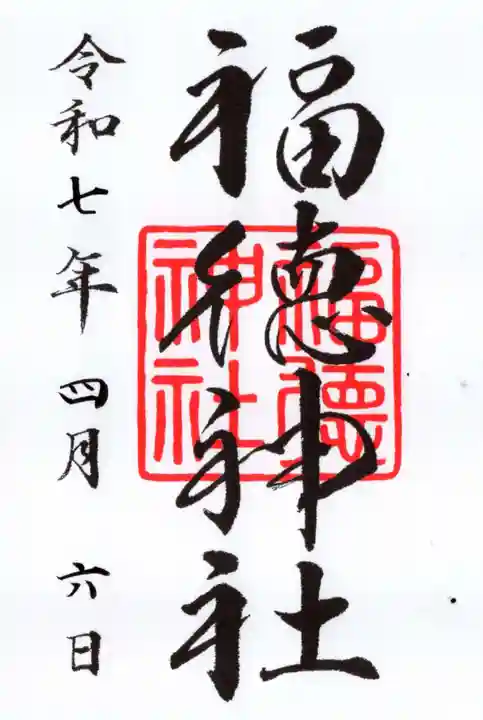 福徳神社
福德神社
令和七年 四月 六日